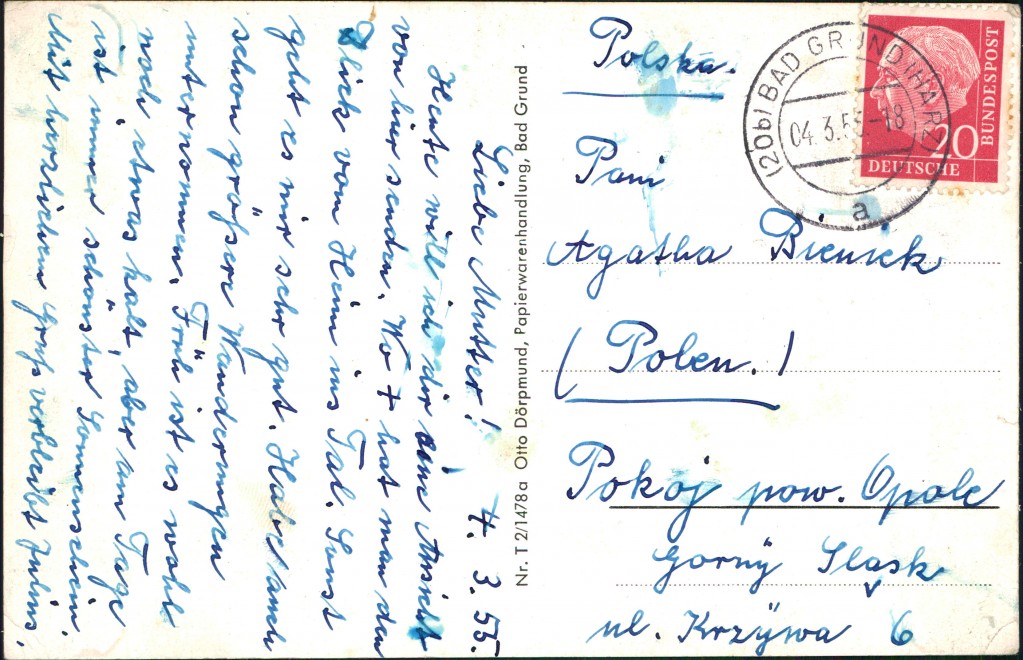 Liebe Mutter! 4. 3. 55.
Heute will ich dir eine Ansicht
von hier senden. Wo + hat man den
Blick vom Heim ins Tal. Sonst
geht es mir sehr gut. Habe auch
schon größere Wanderungen
unternommen. Früh ist es wohl
noch etwas kalt, aber am Tage
ist immer schönster Sonnenschein.
Mit herzlichem Gruß verbleibt Julius.
Nr. T 2/1478a Otto Dörpmund, Papierwarenhandlung, Bad Grund
(20b) BAD GRUND (HARZ)
04.3.55.-18
a
20
DEUTSCHE
BUNDESPOST
Polska.
Pani
Agatha Bieniek
(Polen.)
Pokój pow. Opole
Gorny Slask
ul. Krzywa 6